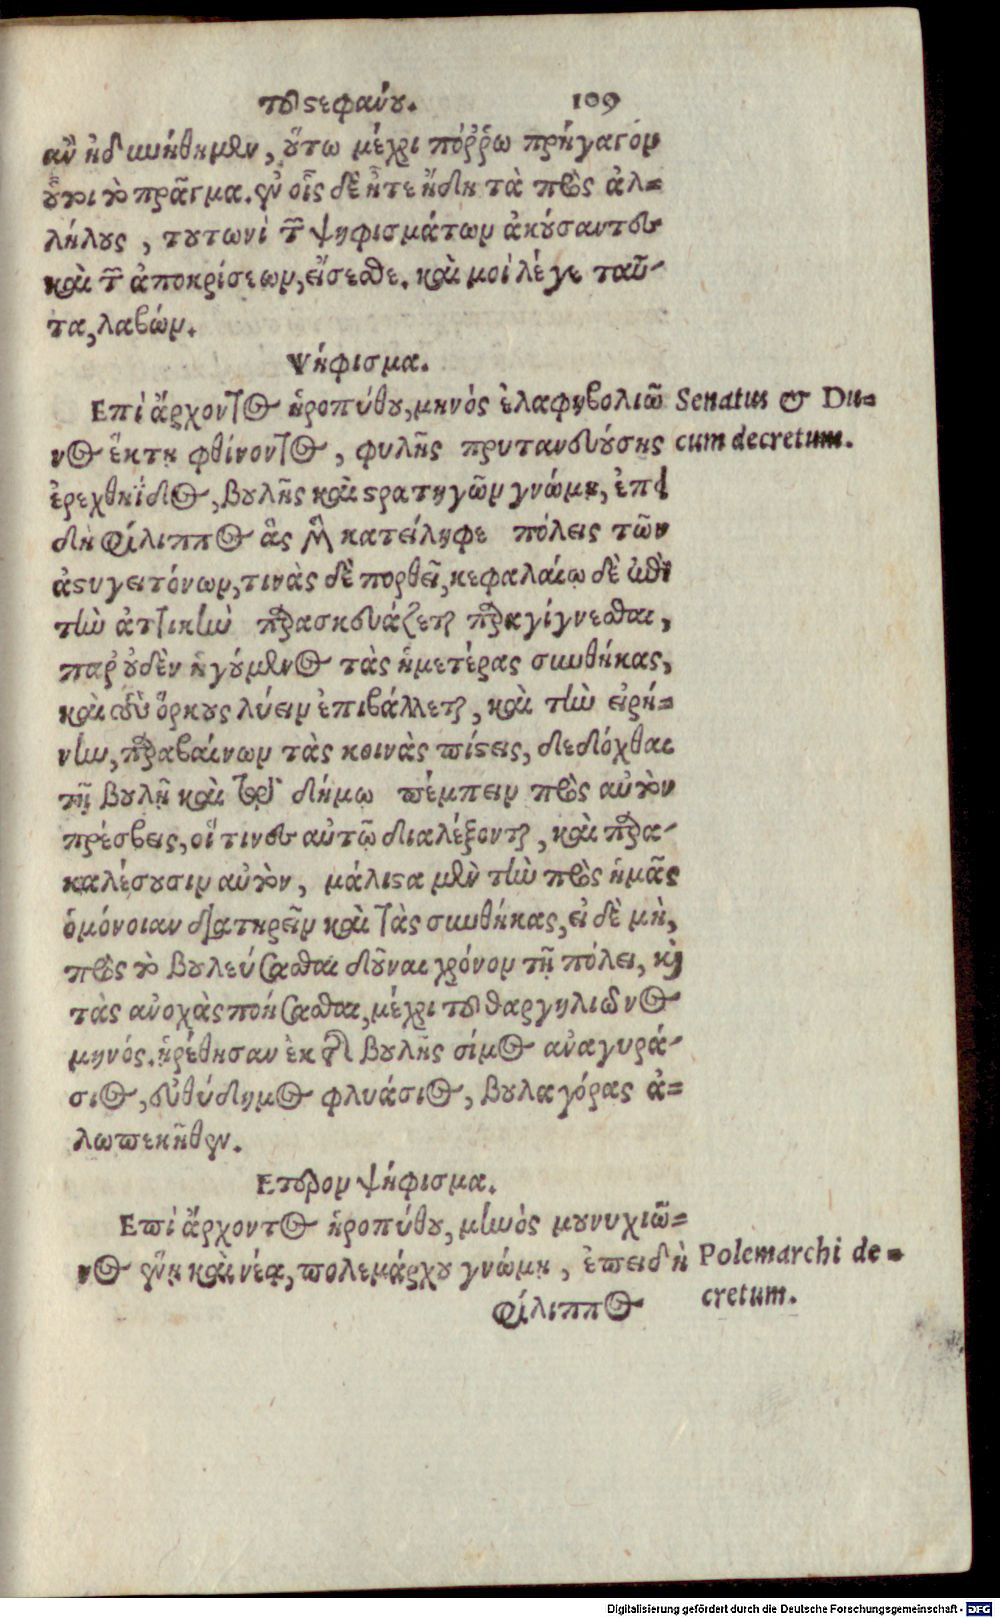 τοῦ στεφάνου. 109
ἂν ἠδυνήθημεν, οὕτω μέχρι πόῤῥω πρήγαγον
οὗτοι τὸ πρᾶγμα. ἐν οἷς δὲ ἦτε ἤδη τὰ πρὸς ἀλ=
λήλους, τουτωνὶ τῶν ψηφισμάτων ἀκούσαντες
καὶ τῶν ἀποκρίσεων, εἴσεσθε. καὶ μοὶ λέγε ταῦ-
τα, λαβών.
Ψήφισμα.
Επὶ ἄρχοντος ἡροπύθου, μηνὸς ἐλαφηβολιῶ Senatus & Du=
νος ἕκτῃ φθίνοντος, φυλῆς πρυτανευούσης cum decretum.
ἐρεχθηΐδος, βουλῆς καὶ στρατηγῶν γνώμῃ, ἐπει
δὴ Φίλιππος ἃς μὲν κατείληφε πόλεις τῶν
ἀστυγειτόνων, τινὰς δὲ πορθεῖ, κεφαλαίῳ δὲ ἐπὶ
τὴν ἀττικὴν παρασκευάζεται παραγίγνεσθαι,
παρ' οὐδὲν ἡγούμενος τὰς ἡμετέρας συνθήκας,
καὶ τοὺς ὅρκους λύειν ἐπιβάλλεται, καὶ τὴν εἰρή=
νην, παραβαίνων τὰς κοινὰς πίστεις, δεδόχθαι
τῇ βουλῇ καὶ τῷ δήμῳ πέμπειν πρὸς αὐτὸν
πρέσβεις, οἵ τινες αὐτῷ διαλέξονται, καὶ παρα-
καλέσουσιν αὐτὸν, μάλιστα μὲν τὴν πρὸς ἡμᾶς
ὁμόνοιαν διατηρεῖν καὶ τὰς συνθήκας, εἰ δὲ μὴ,
πρὸς τὸ βουλεύσασθαι δοῦναι χρόνον τῇ πόλει, καὶ
τὰς ἀνοχὰς ποιήσασθαι, μέχρι τοῦ θαργηλιῶνος
μηνός. ᾑρέθησαν ἐκ τῆς βουλῆς σίμος ἀναγυρά-
σιος, εὐθύδημος φλυάσιος, βουλαγόρας ἀ=
λωπεκῆθεν.
Ετερον ψήφισμα.
Επὶ ἄρχοντος ἡροπύθου, μηνὸς μουνυχιῶ=
νος ἕνῃ καὶ νέᾳ, πολεμάρχου γνώμῃ, ἐπειδὴ Polemarchi de=
Φίλιππος cretum.
Digitalisierung gefördert durch die Deutsche Forschungsgemeinschaft - DFG